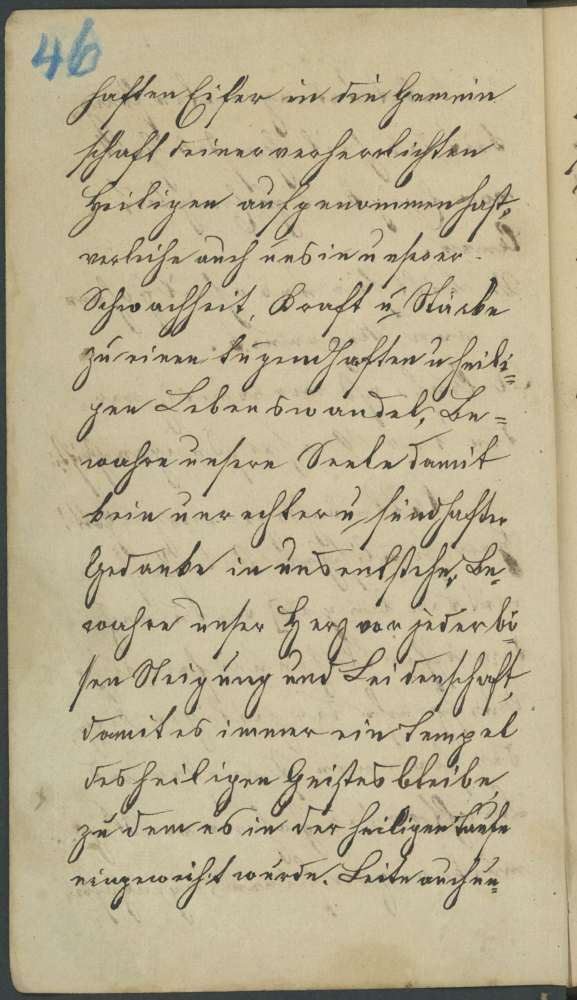 46
haften Eifer in die Gemein
schaft deiner verherrlichten
Heiligen aufgenommen hast,
verleihe auch uns in unserer
Schwachheit, Kraft u Stärke
zu einen tugendhaften u heili=
gen Lebenswandel, Be=
wahre unsere Seele damit
kein unrechter u sündhafter
Gedanke in uns entstehe, Be=
wahre unser Herz vor jeder bö
sen Neigung und Leidenschaft,
damit es immer ein Tempel
des heiligen Geistes bleibe,
zu dem es in der heiligen Taufe
eingeweiht wurde. Leite auch un=